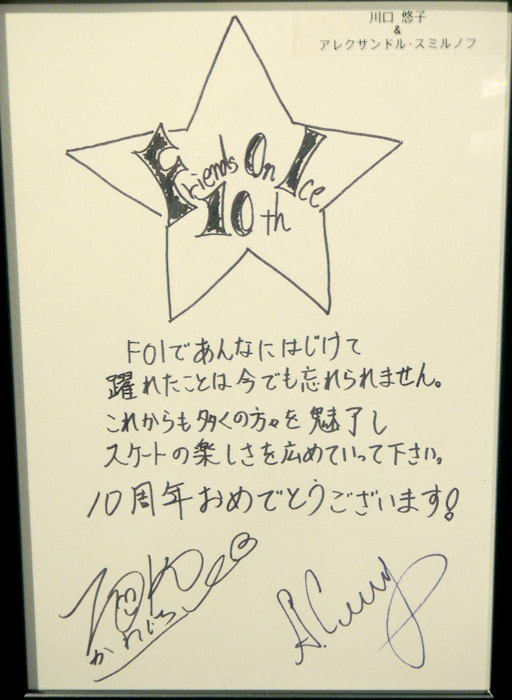 川口 悠子
&
アレクサンドル・スミルノフ
Friends On Ice
10th
FOIであんなにはじけて
躍れたことは今でも忘れられません。
これからも多くの方々を魅了し
スケートの楽しさを広めていって下さい。
10周年おめでとうございます!
かわぐち